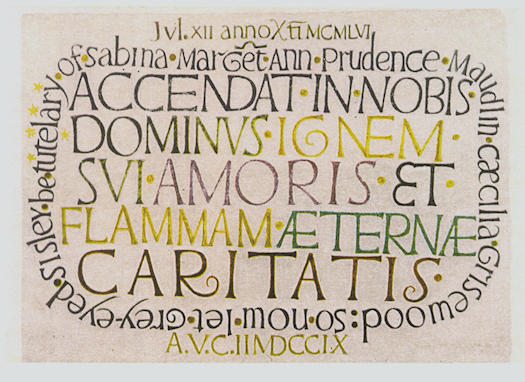 Jvl.XII anno Xti MCMLVI
so·now·let·Grey-eyed·Sisley·be·tutelary·of·sabina·Marget·Ann·Prudence·Maudlin·cæcilia·Grisewood:
ACCENDAT·IN·NOBIS·
DOMINVS·IGNEM·
SVI·AMORIS·ET·
FLAMMAM·ÆTERNÆ
CARITATIS·
A.V.C.IIMDCCIX